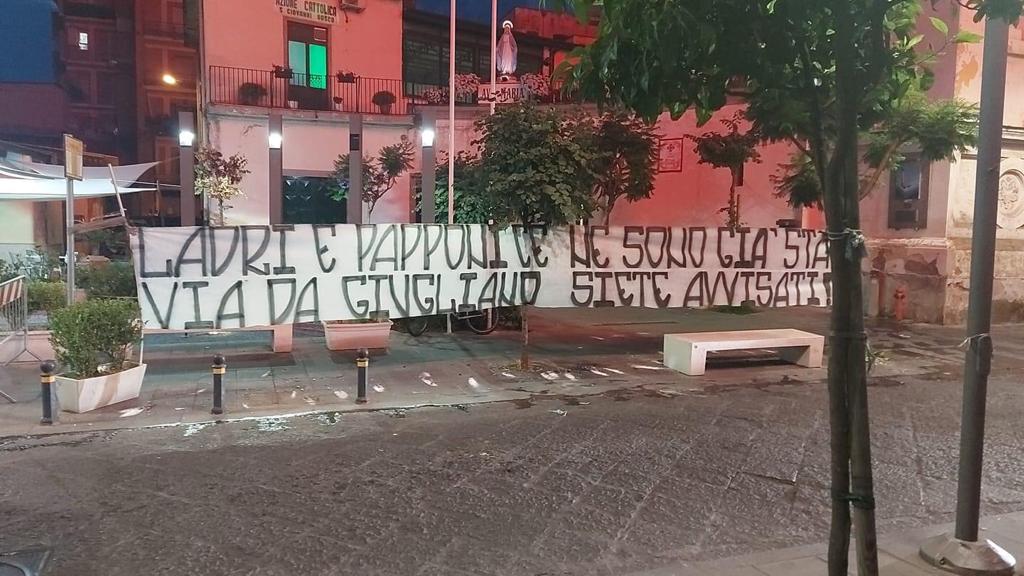 AZIONE CATTOLICA
S. GIOVANNI BOSCO
AVE MARIA
LADRI E PAPPONI CE NE SONO GIA' STA
VIA DA GIUGLIANO SIETE AVVISATI!